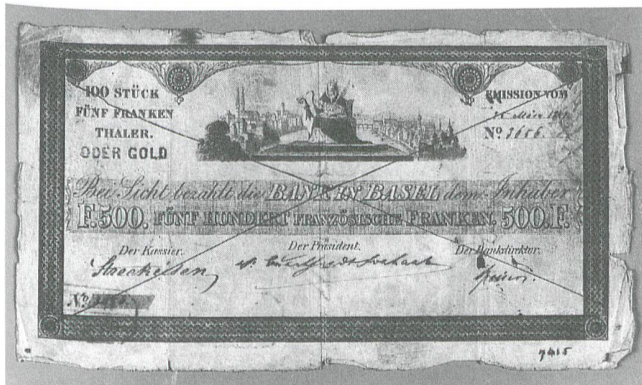 100 STÜCK
FÜNF FRANKEN
THALER.
ODER GOLD
EMISSION VOM
März
Nº 3656.
Bei Sicht bezahlt die BANK IN BASEL dem Inhaber
F. 500. FÜNF HUNDERT FRANZÖSISCHE FRANKEN. 500. F.
Der Kassier. Der Präsident. Der Bankdirektor.
Nº
7415